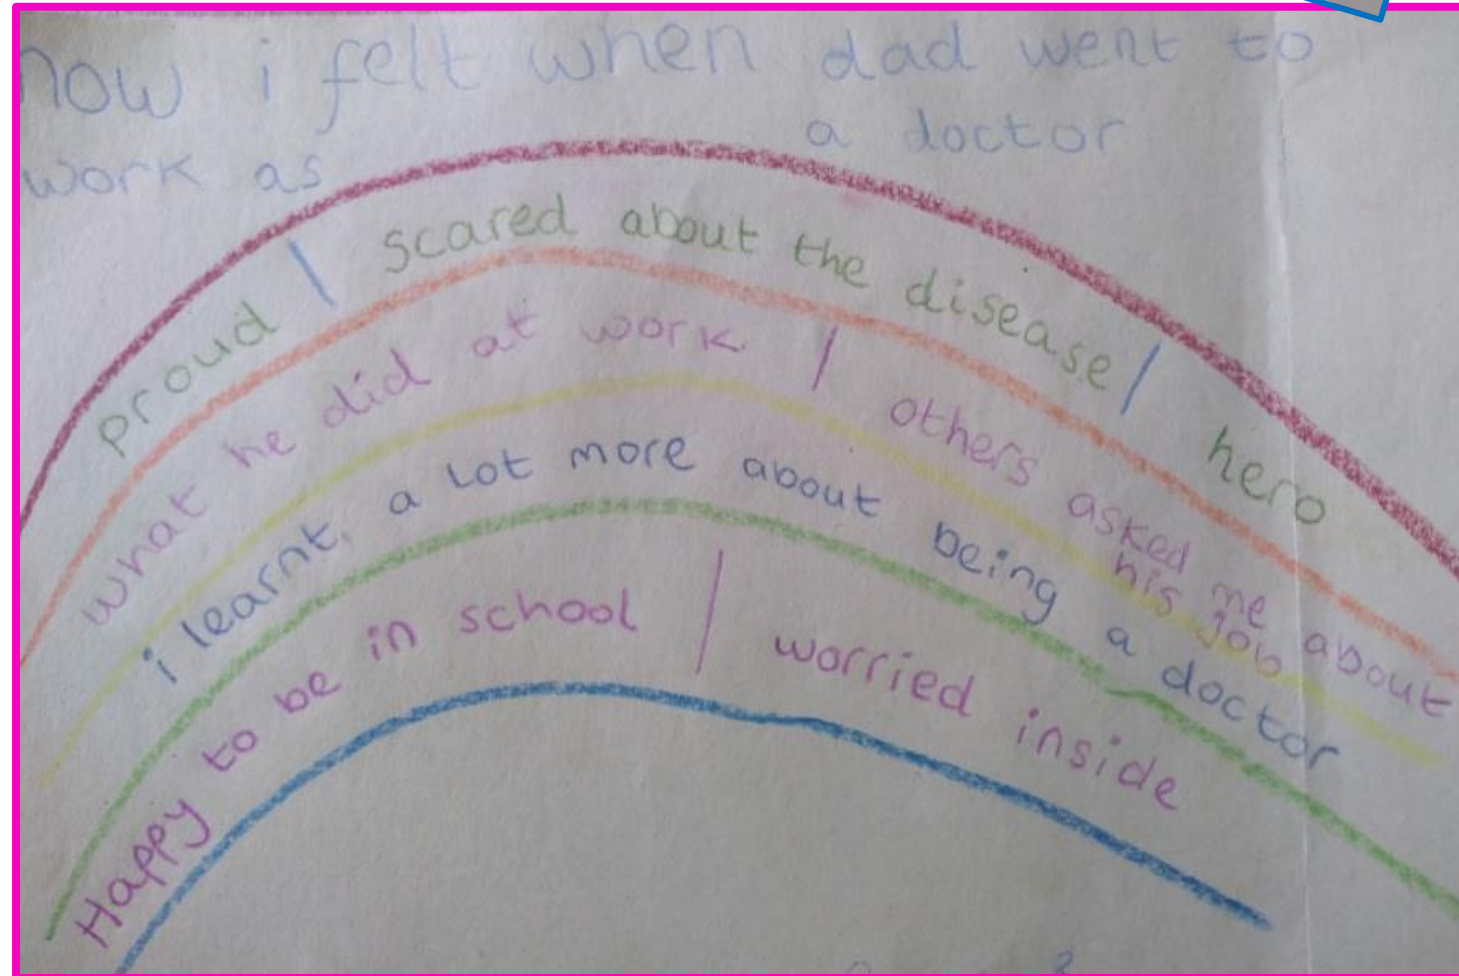 how i felt when dad went to
work as a doctor
proud | scared about the disease | hero
what he did at work. | others asked me about
his job
i learnt, a lot more about being a doctor
Happy to be in school | worried inside